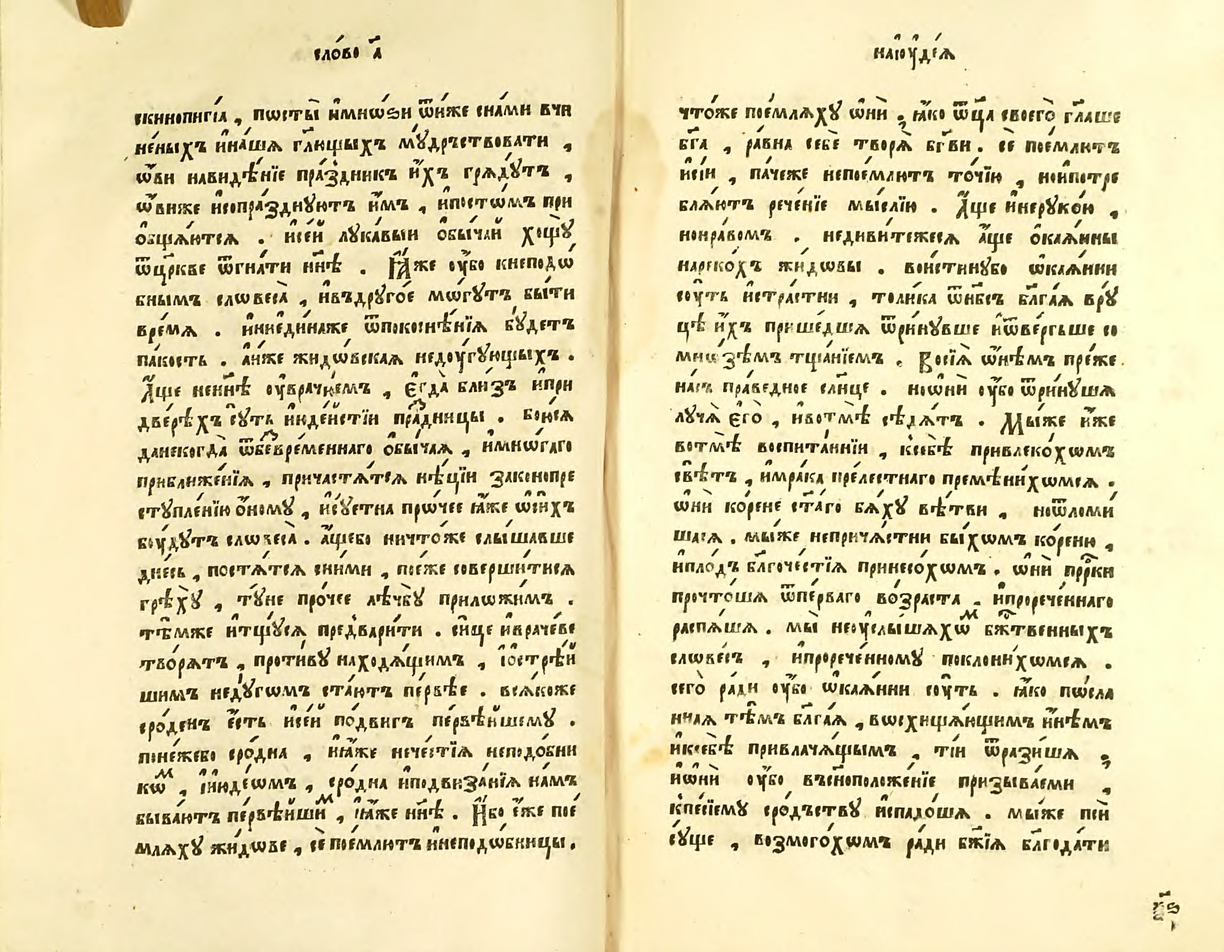 сло́во а҃
скинопигі́а , посты̀ и҆мно́ѕи ѿни́же сна́ми вчи
не́ныхъ ина́шѧ гл҃щыхъ мꙋ́дръствовати ,
ѡ҆́ви навидѣ́нїе пра́здникъ и҆́хъ грѧдꙋ́тъ ,
ѡ҆́виже и҆спра́зднꙋютъ и҆̀мъ , ипосто́мъ при
о҆бща́ютсѧ . исе́й лꙋка́вый обы́чай хощꙋ̀
ѿцр҃кве ѿгна́ти нн҃ѣ . Ꙗ҆́же ᲂу҆́бо кнеподѡ́
бнымъ словеса̀ , ивъдрꙋго́е мо́гꙋтъ бы́ти
вре́мѧ . и҆ниеди́наже ѿпокоснѣ́нїѧ бꙋ́детъ
па́кость . а҆́ниже жидо́вскаѧ недꙋ́гꙋющыхъ .
А҆́ще ненн҃ѣ ᲂу҆врачꙋ́емъ , є҆гда̀ бли́зъ и҆при
две́рѣхъ сꙋ́ть и҆ндѣ́йстїи пра́дницы . бою́сѧ
данекогда̀ ѿбезвре́меннаго обы́чаѧ , и҆мно́гаго
приближе́нїѧ , причастѧ́тсѧ нѣ́цїи законопре
стꙋпле́нїю о҆́номꙋ , и҆сꙋ́етна про́чее ꙗ҆́же ѡ҆си́хъ
бꙋ́дꙋтъ словеса̀ . а҆́щебо ничто́же слы́шавше
дне́сь , постѧ́тсѧ сни́ми , по́сже соверши́тисѧ
грѣхꙋ̀ , тꙋ́не про́чее лѣчбꙋ̀ прило́жимъ .
тѣ́мже и҆тщꙋ́сѧ предвари́ти . си́це иврачеве
творѧ́тъ , проти́вꙋ находѧ́щимъ , і҆острѣ́й
шимъ недꙋ́гѡмъ ста́ютъ пе́рвѣе . всѧ́коже
сро́денъ є҆́сть исе́й по́двигъ первѣ́йшемꙋ .
поне́жебо сро́дна , и҆ꙗ҆́же нече́стїѧ неподо́бни
кѡм , і҆июде́ѡмъ , сро́дна иподвиза́нїѧ на́мъ
быва́ютъ первѣ́йшим , ꙗ҆́же нн҃ѣ . И҆́бо є҆́же поє
млѧ́хꙋ жидо́ве , сѐ пое́млютъ инеподо́бницы .
наїꙋде́ѧ
что́же пое́млѧхꙋ ѻ҆нѝ ; ꙗ҆́ко ѻ҆ц҃а̀ своего̀ гл҃аше
бг҃а , ра́вна себѐ творѧ̀ бг҃ви . сѐ пое́млютъ
и҆сі́и , па́чеже непое́млютъ то́чїю , нои҆потре
блѧ́ютъ рече́нїе мы́слїю . А҆́ще и҆нерꙋко́ю ,
нонра́вомъ . недиви́тежесѧ а҆́ще о҆каѧ́нны
нареко́хъ жидо́вы . вои́стинꙋбо ѡ҆каѧ́нни
сꙋ́ть и҆стра́стни , толи́ка ѿнб҃съ бл҃га́ѧ врꙋ
цѣ̀ и҆́хъ прише́дшѧ ѿри́нꙋвше и҆ѿве́ргьше со
мно́зѣмъ тща́нїемъ . Восїѧ̀ ѻ҆нѣ́мъ пре́же
на́съ пра́ведное сл҃нце . ноѻ҆ни́ ᲂу҆́бо ѿри́нꙋшѧ
лꙋчѧ̀ є҆гѡ̀ , ивотмѣ̀ сѣдѧ́тъ . Мы́же и҆́же
вотмѣ̀ воспита́ннїи , ксебѣ̀ привлеко́хомъ
свѣ́тъ , и҆мра́ка преле́стнаго премѣни́хомсѧ .
ѻ҆нѝ ко́рене ст҃а́го бѧ́хꙋ вѣ́тви , ноѿломи
шасѧ . мы́же неприча́стни бы́хомъ ко́реню ,
и҆пло́дъ бл҃гоче́стїѧ принесо́хомъ . ѻ҆нѝ прⷪ҇рки
прочто́шѧ ѿпе́рваго во́зраста . и҆прорече́ннаго
распѧ́шѧ . мы̀ неᲂу҆слы́шахом бж҃твенныхъ
слове́съ , и҆прорече́нномꙋ поклони́хомсѧ .
сего̀ ра́ди ᲂу҆́бо ѡ҆каѧ́нни сꙋ́ть . ꙗ҆́ко по́сла
ннаѧ тѣ́мъ бл҃га́ѧ , восхища́ющимъ и҆нѣ́мъ
и҆ксебѣ̀ привлача́щымъ , ті́и ѿрази́шѧ ;
и҆ѻ҆нѝ ᲂу҆́бо въсн҃оположе́нїе призыва́еми ,
кпе́сїемꙋ сро́дьствꙋ и҆спадо́шѧ . мы́же пси̑
сꙋ́ще , возмого́хомъ ра́ди бж҃їѧ бл҃года́ти